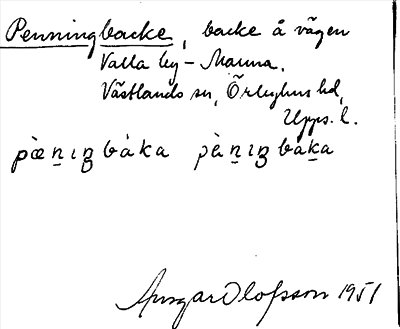 Penningbacke, backe å vägen
Valla by – Marma.
Västlands sn, Örbyhus hd,
Upps. l.
pæ̀ṉıŋbáka pæ̀ṉıŋbáḵa
Ansgar Olofsson 1951